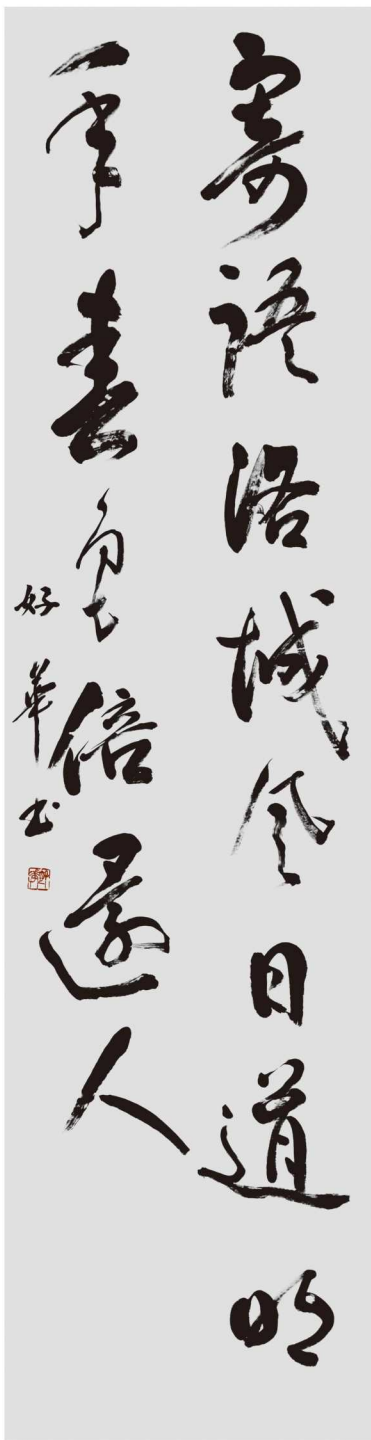 寄語洛城風日道明
年春色倍還人
好華書